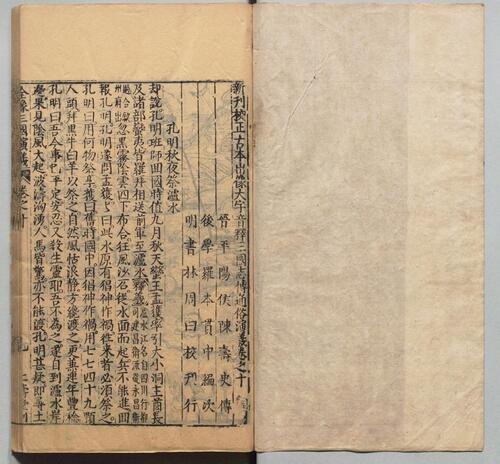 新刊校正古本出像大字音釋三國志傳通俗演義卷之十
晉平陽侯陳壽史傳
後學羅本貫中編次
明書林周曰校刊行
孔明秋夜祭瀘水
却說孔明班師回國時值九月秋天蠻王孟獲率引大小洞主酋長
及諸部蠻夷皆羅拜相送前軍至瀘水釋義
忽黑霧陰雲四下布合狂風沙石從水面而起兵不能進回
報孔明孔明遂問孟獲獲曰此水原有猖神作禍往來者必須祭之
孔明曰用何物祭享獲曰舊時國中因猖神作禍用七七四十九顆
人頭并黑牛白羊以祭之自然風恬浪靜方纔渡之更兼連年豐稔
孔明曰吾今事已平定安忍又殺生靈耶吾不為之遂自到瀘水岸
邊果見陰風大起波濤洶湧人馬皆驚亦不能渡孔明甚疑即尋土
全像三國演義 卷之十